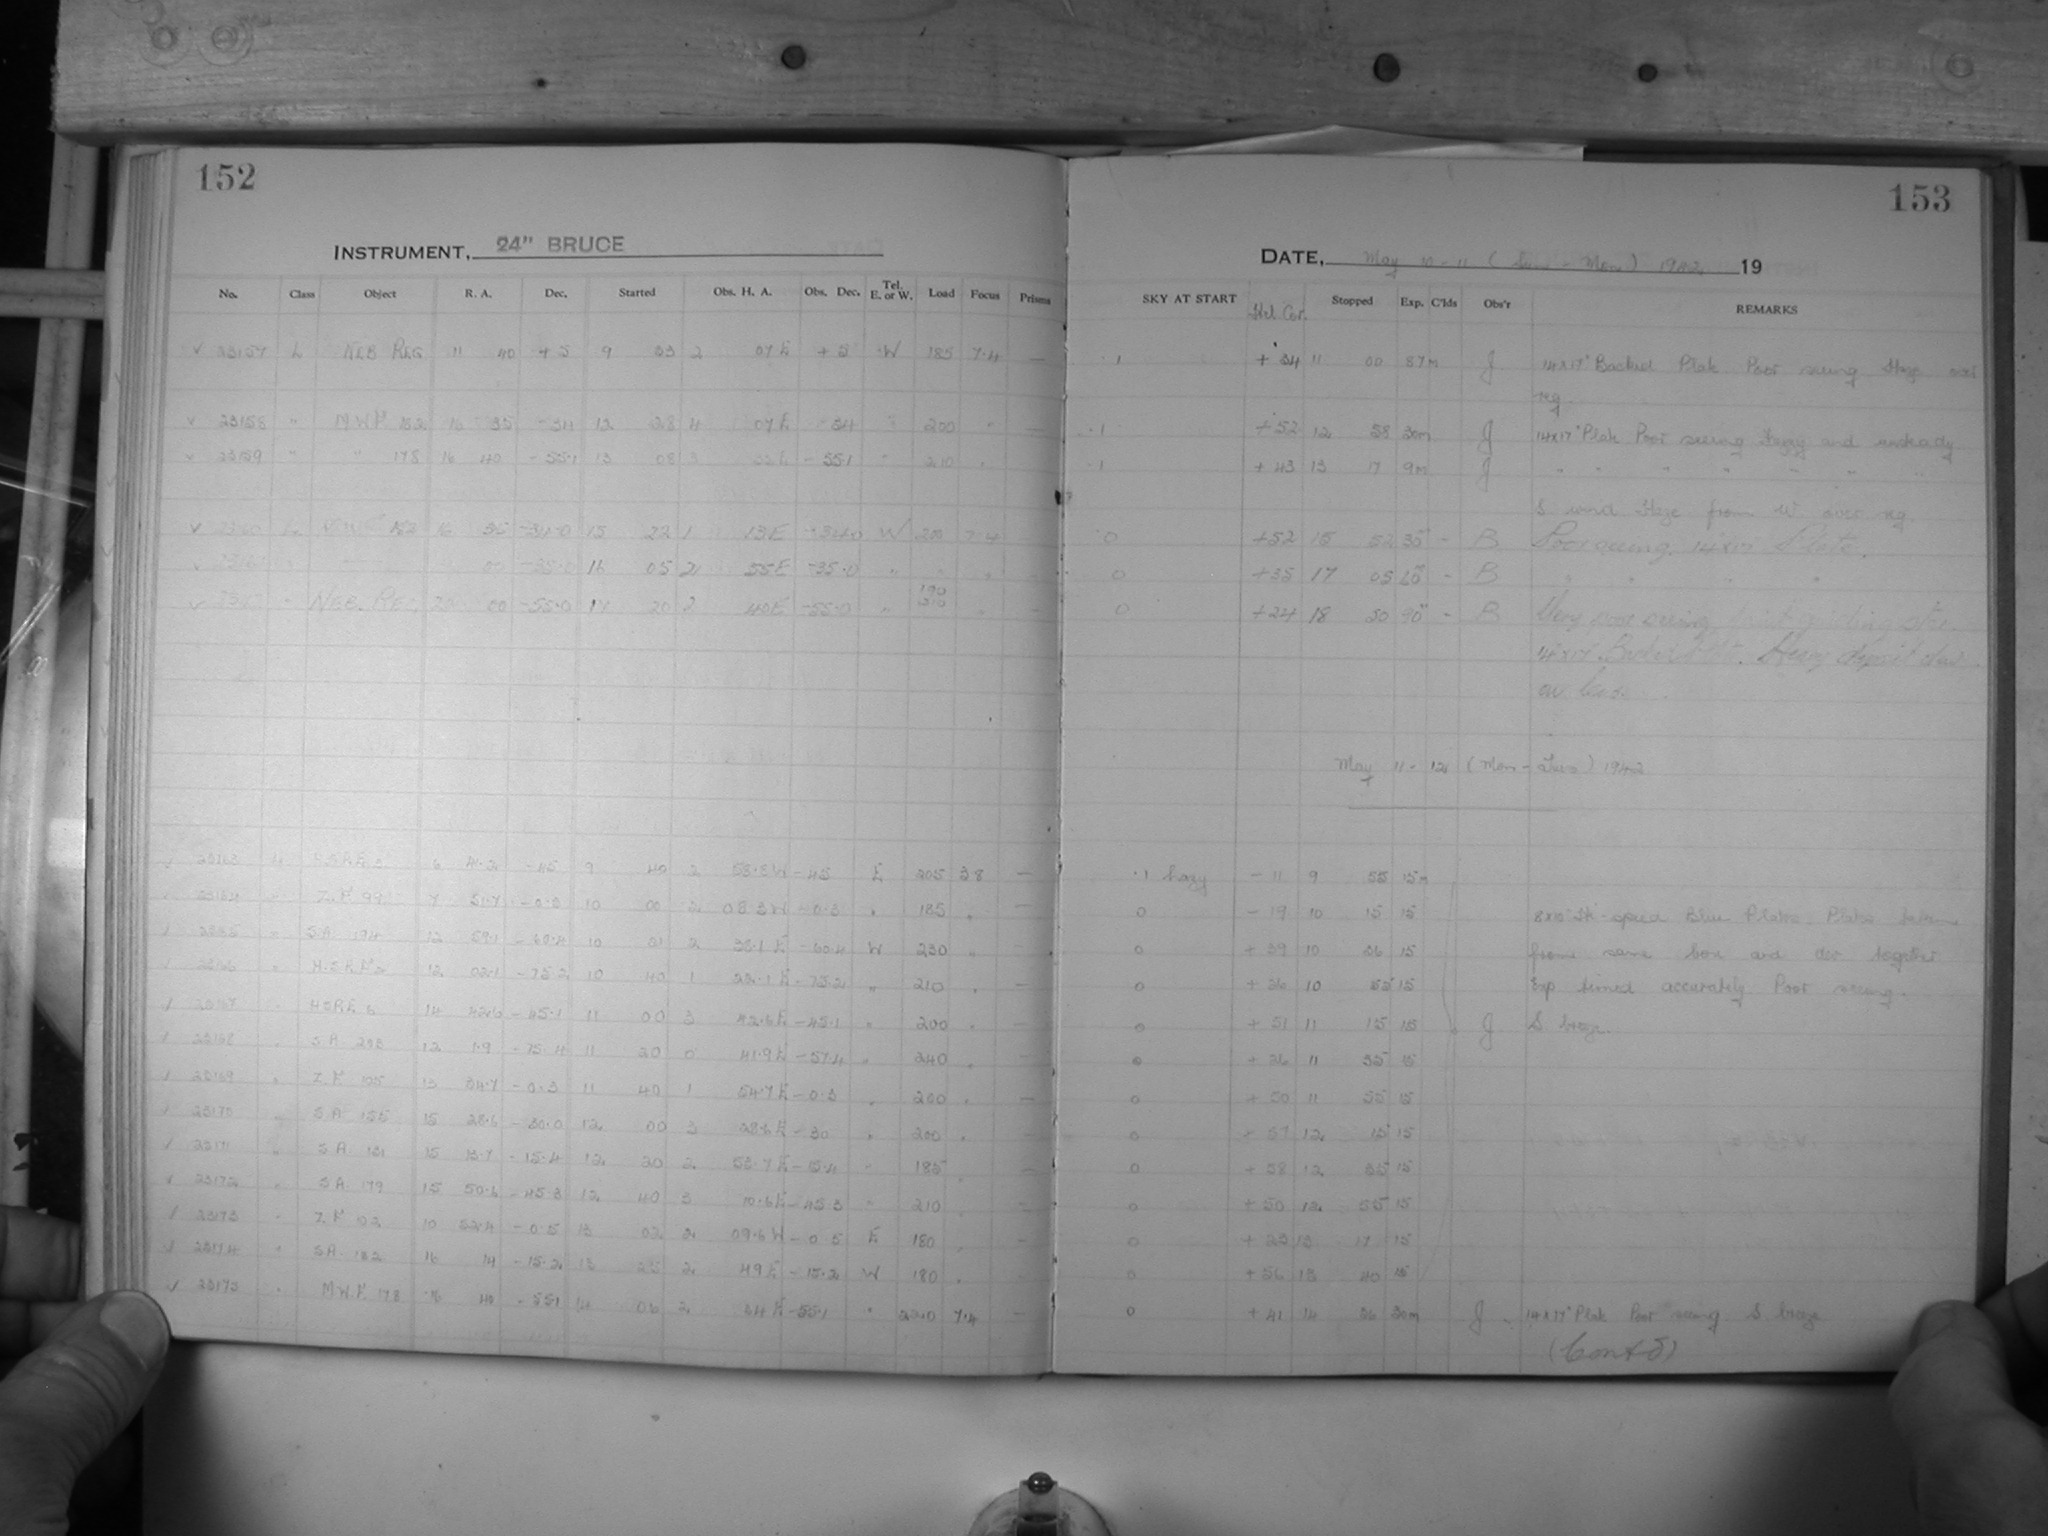 152
INSTRUMENT, 24" BRUCE
No. Class Object R. A. Dec. Started Obs. H. A. Obs. Dec. Tel. E. or W. Load Focus Prisms
√ 23157 L NEB REG 11 40 +5 9 33 2 07 E +5 W 185 7.4 —
√ 23158 " M.W.F. 182 16 35 -34 12 28 4 07 E -34 " 200 " —
√ 23159 " " 178 16 40 -55.1 13 08 3 E -55.1 " 210 " —
√ 16 35 -34.0 15 22 1 13 E -34.0 W 200 7.4
√ 00 -35.0 16 05 2 55 E -35.0 " "
√ NEB. REG. 20 00 -55.0 17 20 2 40 E -55.0 " 190 210 "
√ 23163 6 41.2 -45 9 40 2 58.8 W -45 E 205 3.8 —
Z.F. 99 7 51.7 -0.3 10 00 2 08.3 W -0.3 " 185 "
S.A. 194 12 59.1 -60.4 10 21 2 38.1 E -60.4 W 230 "
12 02.1 -75.2 10 40 1 22.1 E -75.2 " 210 "
√ 23167 " 14 42.6 -45.1 11 00 3 42.6 E -45.1 " 200 "
√ 23168 " S.A. 203 12 1.9 -75.4 11 20 0 41.9 E -57.4 " 240 "
√ 23169 " Z.F. 105 13 34.7 -0.3 11 40 1 54.7 E -0.3 " 200 " —
√ 23170 " S.A. 155 15 28.6 -30.0 12 00 3 28.6 E -30 " 200 " —
√ 23171 " S.A. 131 15 13.7 -15.4 12 20 2 53.7 E -15.4 " 185 —
√ 23172 " S.A. 179 15 50.6 -45.3 12 40 3 10.6 E -45.3 " 210 —
√ 23173 " Z.F. 102 10 52.4 -0.5 13 02 2 09.6 W -0.5 E 180 —
√ 23174 " S.A. 132 16 14 -15.2 13 25 2 49 E -15.2 W 180 "
√ 23175 " M.W.F. 178 16 40 -55.1 14 06 2 34 E -55.1 " 220 7.4 —
153
DATE, May 10 - 11 (Sun - Mon) 1942 19
SKY AT START Hel. Cor. Stopped Exp. C'lds Obs'r REMARKS
.1 +34 11 00 87m J 14x17" Backed Plate Poor seeing Haze over
reg.
.1 +52 12 58 30m J 14x17" Plate Poor seeing Fuzzy and unsteady
.1 +43 13 17 9m J " " " " " "
S wind Haze from W over reg.
0 +52 15 52 30 - B Poor seeing. 14x17 Plate.
0 +35 17 05 60 - B " " " "
0 +24 18 50 90 - B Very poor seeing, faint guiding star.
14x17 Backed Plate. Heavy deposit dew
on lens.
May 11 - 12 (Mon - Tues) 1942
.1 hazy -11 9 55 15m
0 -19 10 15 15 8x10" speed Blue Plates. Plates taken
0 +39 10 36 15 from same box and dev together
0 +36 10 55 15 Exp timed accurately Poor seeing.
0 +51 11 15 15 J S breeze
0 +36 11 35 15
0 +50 11 55 15
0 +57 12 15 15
0 +58 12 35 15
0 +50 12 55 15
0 +23 13 17 15
0 +56 13 40 15
0 +41 14 36 30m J 14x17" Plate Poor seeing S breeze
(Contd)